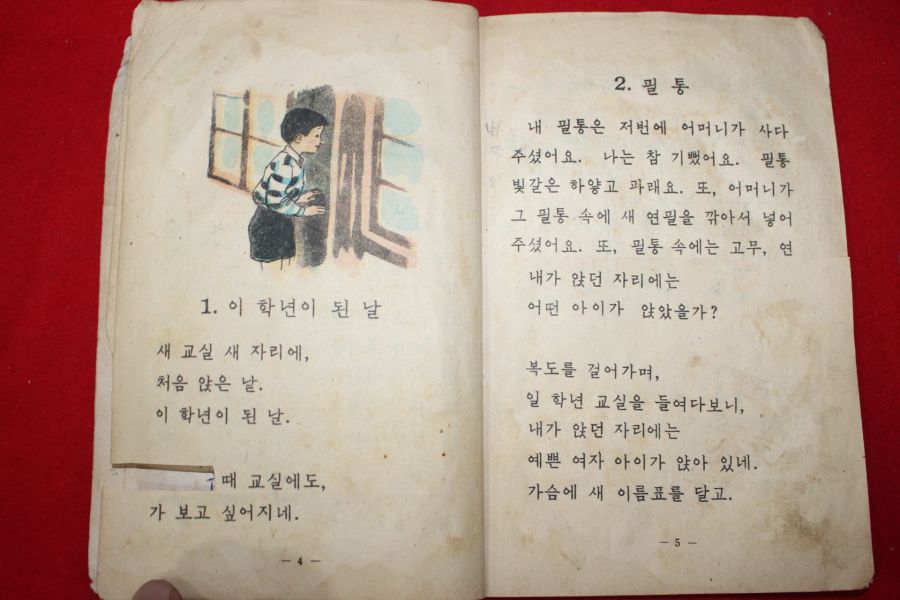 1. 이 학년이 된 날
새 교실 새 자리에,
처음 앉은 날.
이 학년이 된 날.
때 교실에도,
가 보고 싶어지네.
— 4 —
2. 필통
내 필통은 저번에 어머니가 사다
주셨어요. 나는 참 기뻤어요. 필통
빛갈은 하얗고 파래요. 또, 어머니가
그 필통 속에 새 연필을 깎아서 넣어
주셨어요. 또, 필통 속에는 고무, 연
내가 앉던 자리에는
어떤 아이가 앉았을가?
복도를 걸어가며,
일 학년 교실을 들여다보니,
내가 앉던 자리에는
예쁜 여자 아이가 앉아 있네.
가슴에 새 이름표를 달고.
— 5 —